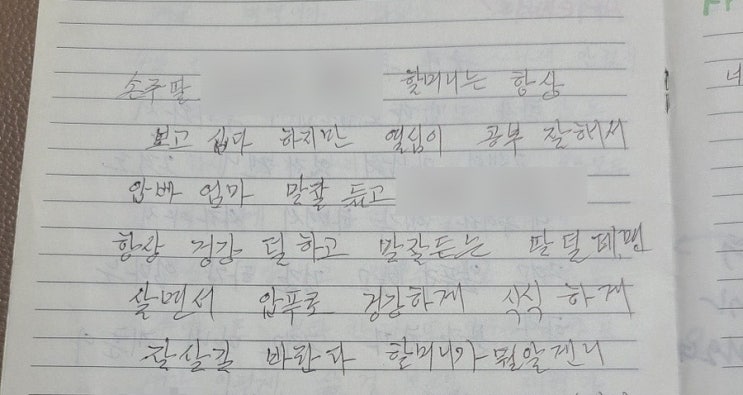 손주딸 할머니는 항상
보고 십다 하지만 열심이 공부 잘해서
압빠 엄마 말잘 듣고
항상 겅강 덜하고 말잘든는 딸덜데면
살면서 압푸로 겅강하게 식식 하게
잘살길 바란다 할머니가
너